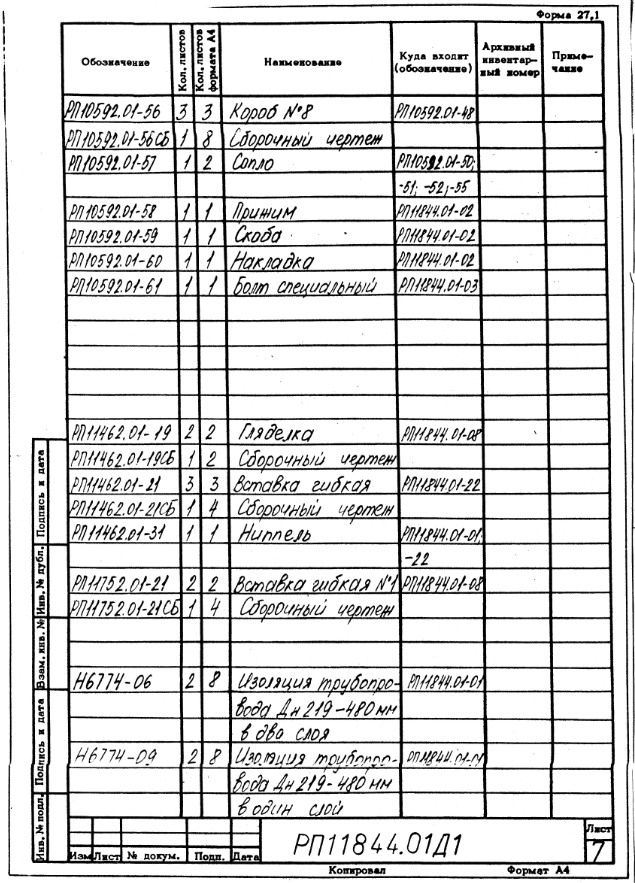 Форма 27,1
Обозначение | Кол. листов | Кол. листов формата А4 | Наименование | Куда входит (обозначение) | Архивный инвентарный номер | Примечание
РП10592.01-56 3 3 Короб №8 РП10592.01-48
РП10592.01-56СБ 1 8 Сборочный чертеж
РП10592.01-57 1 2 Сопло РП10592.01-50;
-51; -52; -55
РП10592.01-58 1 1 Прижим РП11844.01-02
РП10592.01-59 1 1 Скоба РП11844.01-02
РП10592.01-60 1 1 Накладка РП11844.01-02
РП10592.01-61 1 1 Болт специальный РП11844.01-03
РП11462.01-19 2 2 Гляделка РП11844.01-08
РП11462.01-19СБ 1 2 Сборочный чертеж
РП11462.01-21 3 3 Вставка гибкая РП11844.01-22
РП11462.01-21СБ 1 4 Сборочный чертеж
РП11462.01-31 1 1 Ниппель РП11844.01-01,
-22
РП11752.01-21 2 2 Вставка гибкая №1 РП11844.01-08
РП11752.01-21СБ 1 4 Сборочный чертеж
Н6774-06 2 8 Изоляция трубопро- РП11844.01-01
вода Дн 219-480 мм
в два слоя
Н6774-09 2 8 Изоляция трубопро- РП11844.01-01
вода Дн 219-480 мм
в один слой
Инв. № подл.
Подпись и дата
Взам. инв. №
Инв. № дубл.
Подпись и дата
Изм Лист № докум. Подп. Дата
РП11844.01Д1
Лист
7
Копировал Формат А4